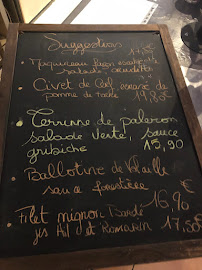 Suggestions
Maquereau façon escabèche
salade, crudités
Civet de Cerf, écrasé de
pomme de terre 19,80€
Terrine de paleron
salade verte, sauce
gribiche 15,90
Ballotine de Volaille
sauce forestière
16,90 €
Filet mignon, Bardé
jus Ail et Romarin 17,50€